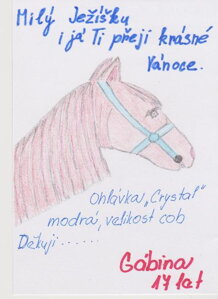 Milý Ježíšku
i já Ti přeji krásné
Vánoce.
Ohlávka „Crystal"
modrá, velikost cob
Děkuji ......
Gábina
17 let